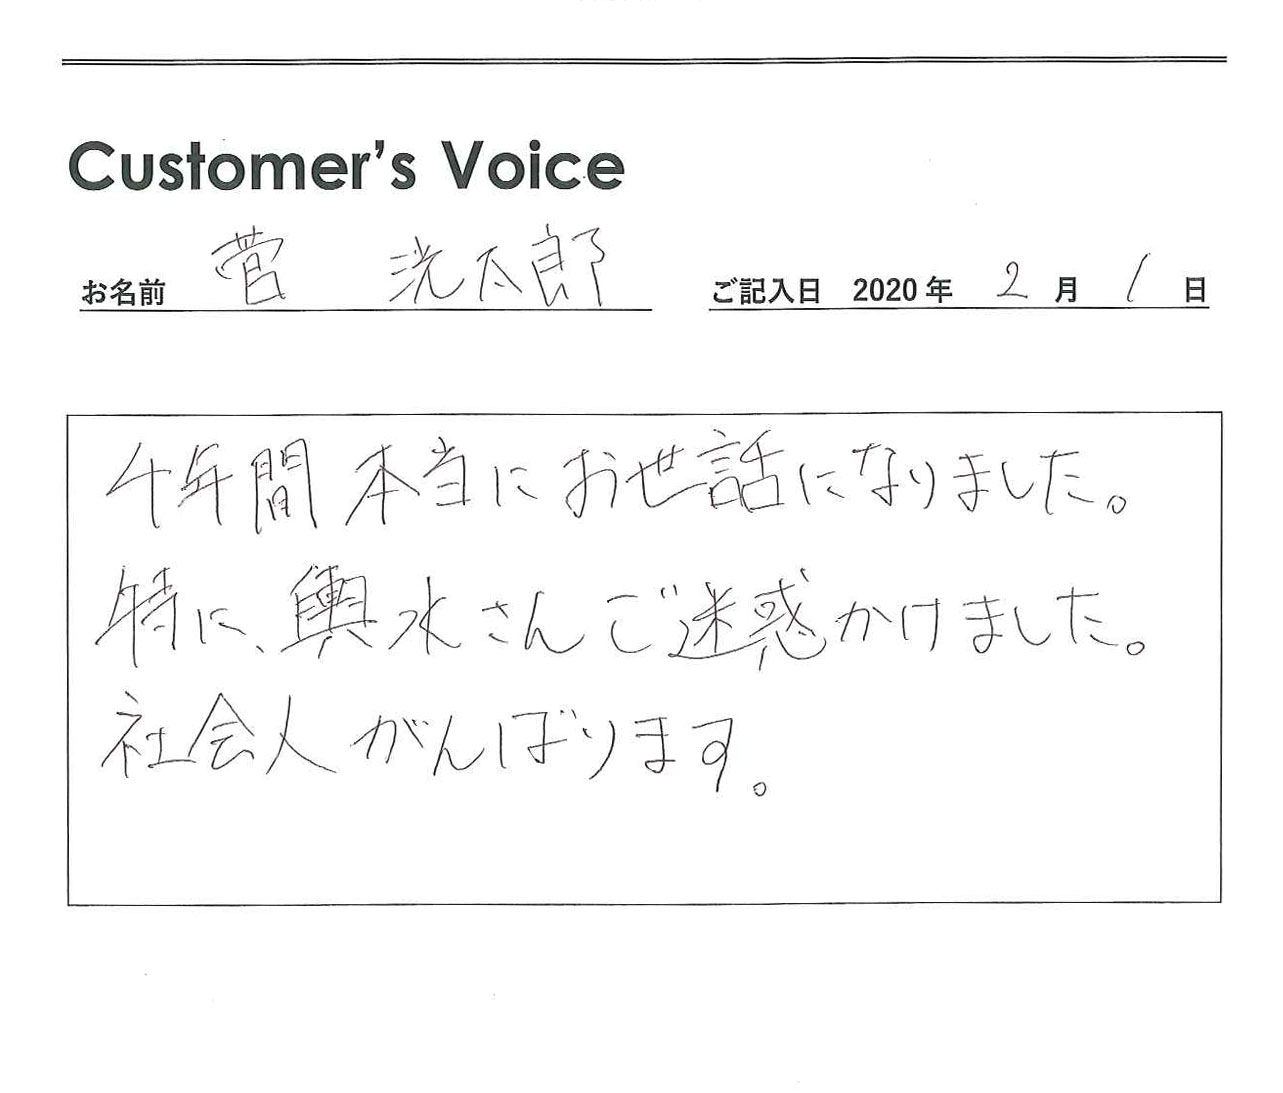 Customer's Voice
お名前 菅 洸太郎 ご記入日 2020年 2月 1日
4年間 本当に お世話になりました。
特に、輿水さんご迷惑かけました。
社会人 がんばります。